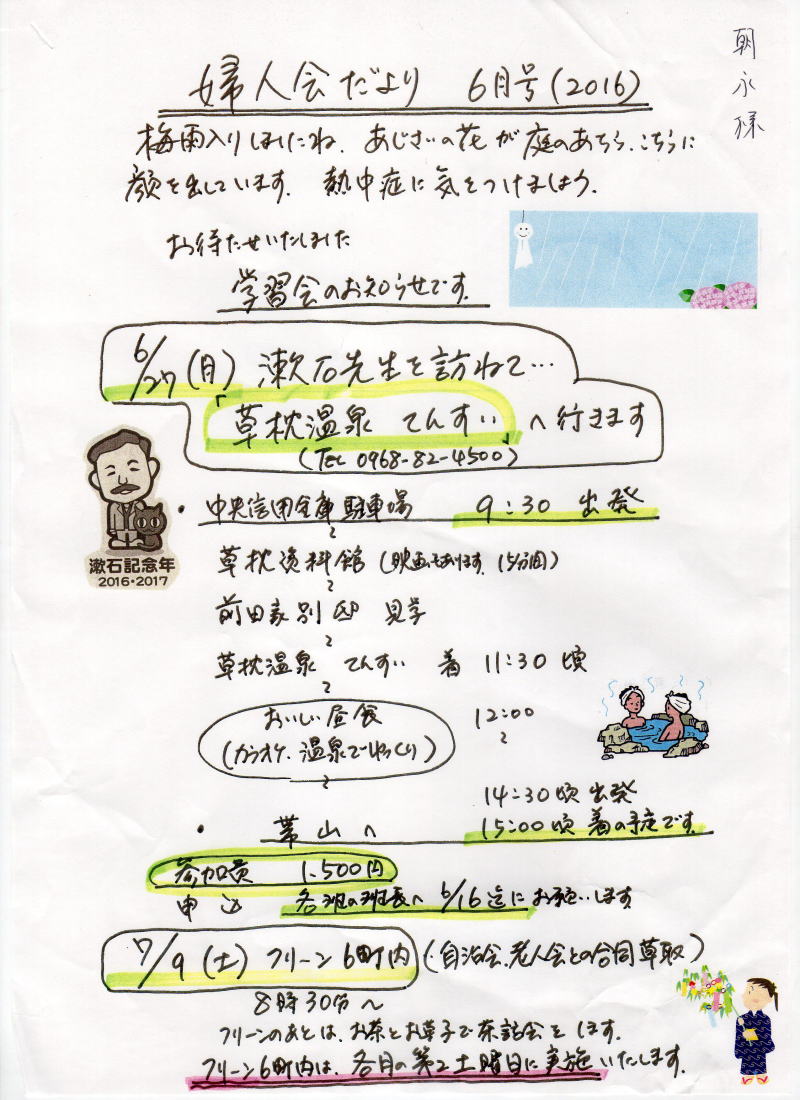 朝永様
婦人会だより 6月号(2016)
梅雨入りしましたね、あじさいの花が庭のあちら、こちらに
顔を出しています。熱中症に気をつけましょう。
お待たせいたしました
学習会のお知らせです。
6/27(月) 漱石先生を訪ねて…
「草枕温泉 てんすい」へ行きます
(TEL 0968-82-4500)
漱石記念年
2016・2017
・中央信用金庫 駐車場 9:30 出発
〜
草枕資料館 (映画もあります。15分間)
〜
前田家別邸 見学
〜
草枕温泉 てんすい 着 11:30頃
〜
おいしい昼食 12:00
(カラオケ、温泉でゆっくり) 〜
〜
14:30頃 出発
・帯山へ 15:00頃 着の予定です。
参加費 1,500円
申込 各班の班長へ 6/16迄にお願いします
7/9(土) クリーン6町内 (・自治会、老人会との合同草取)
8時30分〜
クリーンのあとは、お茶とお菓子で茶話会をします。
クリーン6町内は、各月の第2土曜日に実施いたします。